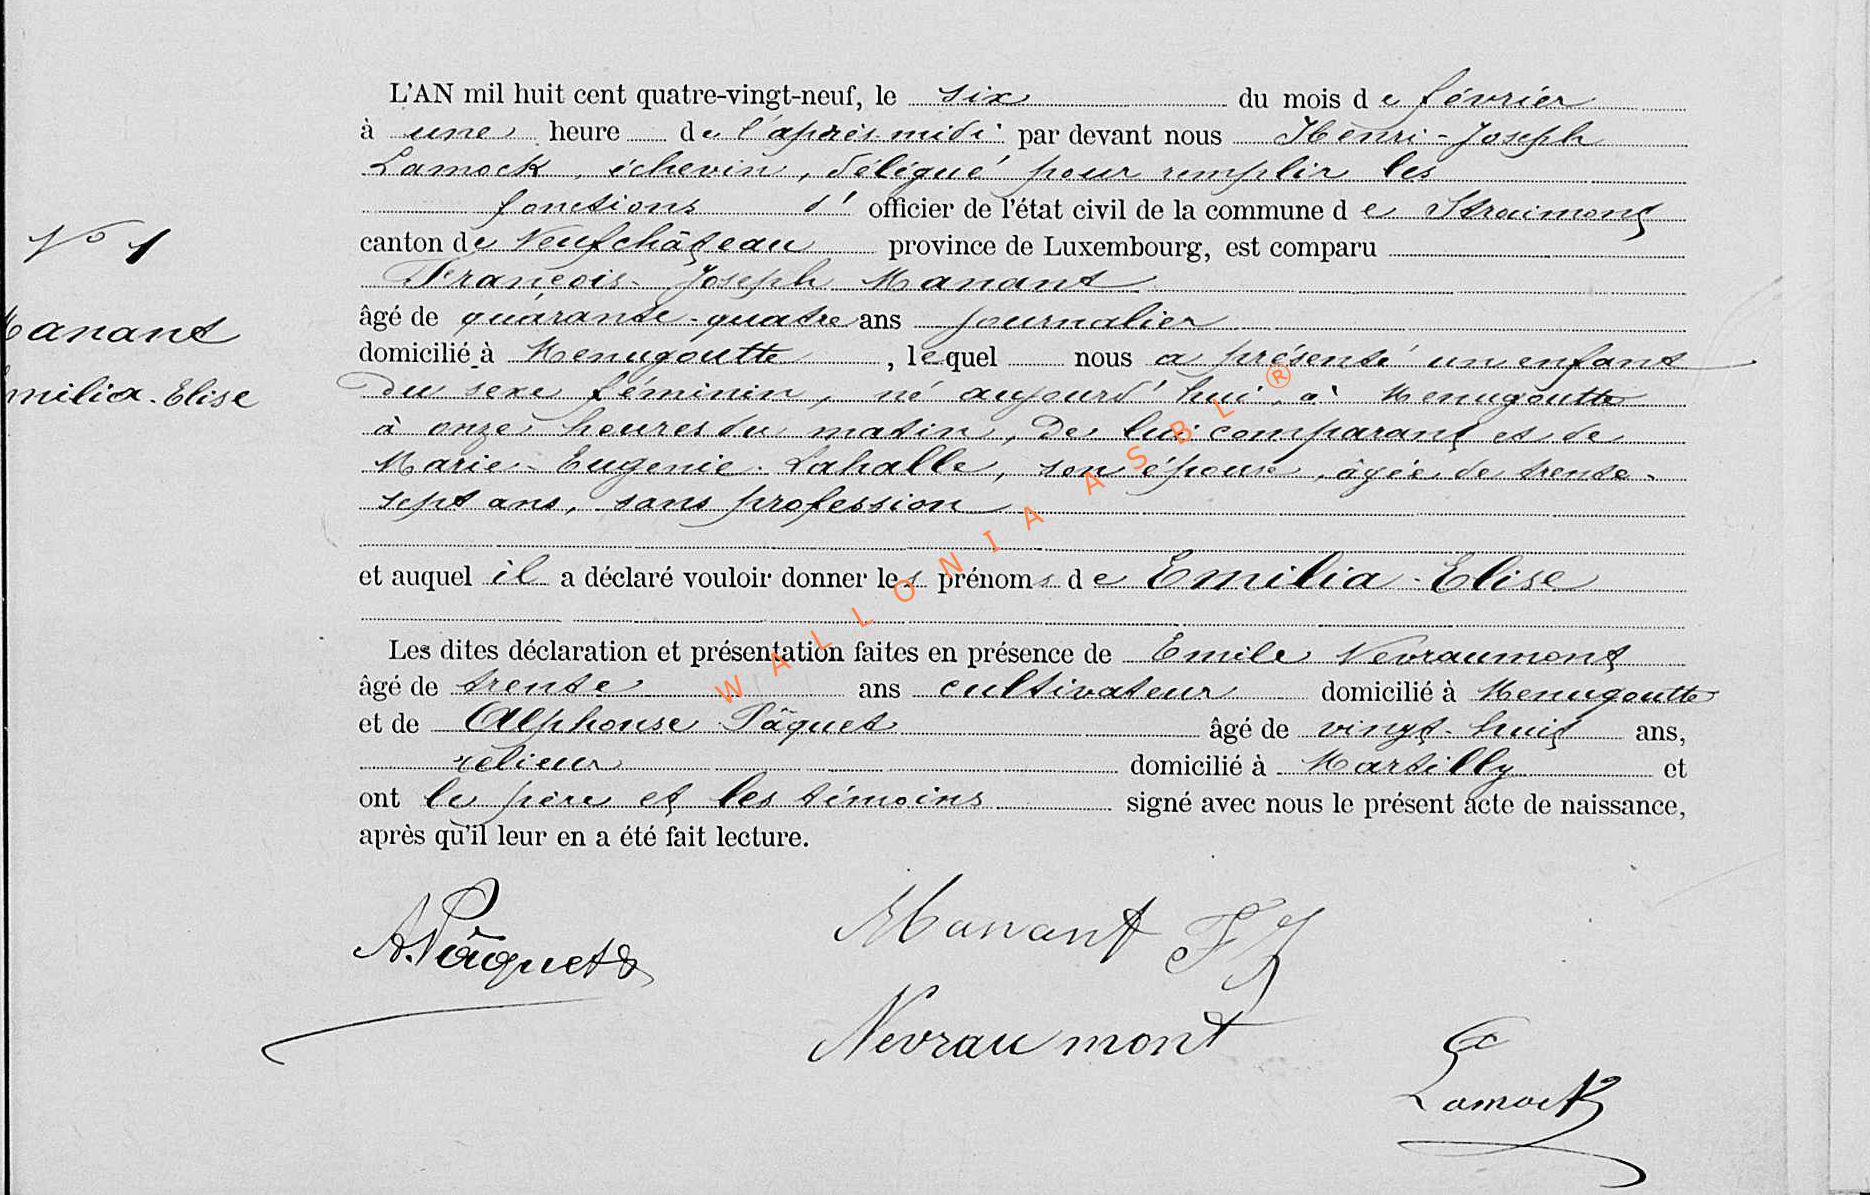 L'AN mil huit cent quatre-vingt-neuf, le six du mois de février
à une heure de l'après-midi par devant nous Henri-Joseph
Lamock, échevin, délégué pour remplir les
fonctions d' officier de l'état civil de la commune de Straimont
N° 1
canton de Neufchâteau province de Luxembourg, est comparu
François-Joseph Manant
âgé de quarante-quatre ans journalier
Manant
domicilié à Menugoutte, lequel nous a présenté un enfant
Emilia-Elise
du sexe féminin, né aujourd'hui, à Menugoutte
à onze heures du matin, de lui comparant et de
Marie-Eugenie Lahalle, son épouse, âgée de trente-
sept ans, sans profession
et auquel il a déclaré vouloir donner les prénoms de Emilia-Elise
Les dites déclaration et présentation faites en présence de Emile Nevraumont
âgé de trente ans cultivateur domicilié à Menugoutte
et de Alphonse Pâquet âgé de vingt-huit ans,
relieur domicilié à Martilly et
ont le père et les témoins signé avec nous le présent acte de naissance,
après qu'il leur en a été fait lecture.
A. Pâquet
Manant F J
Nevraumont
Lamock
WALLONIA ASBL ®